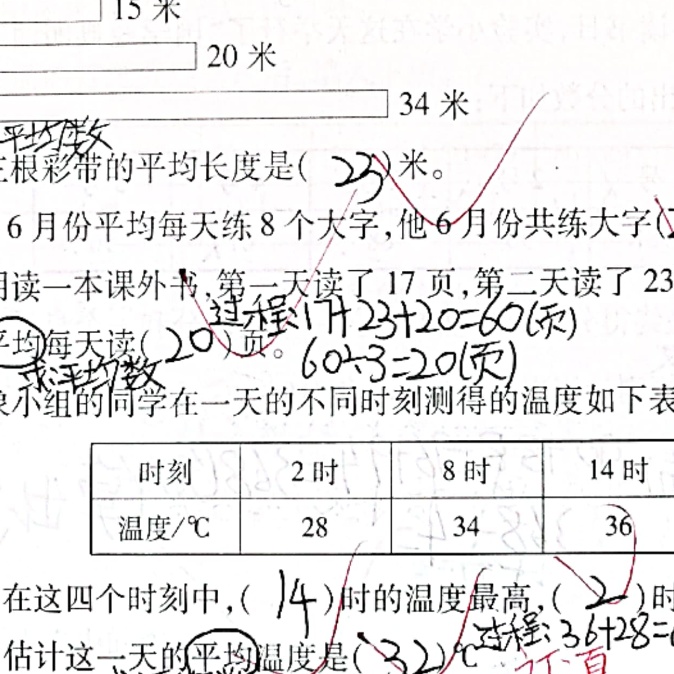 15 米
20 米
34 米
平均数
根彩带的平均长度是( 23 )米。
6 月份平均每天练 8 个大字,他 6 月份共练大字(
读一本课外书,第一天读了 17 页,第二天读了 23
过程:17+23+20=60(页)
平均每天读( 20 )页。
60÷3=20(页)
求平均数
小组的同学在一天的不同时刻测得的温度如下表
时刻 2 时 8 时 14 时
温度/℃ 28 34 36
在这四个时刻中,( 14 )时的温度最高,( 2 )时
过程:36+28=
估计这一天的平均温度是( 32 )℃